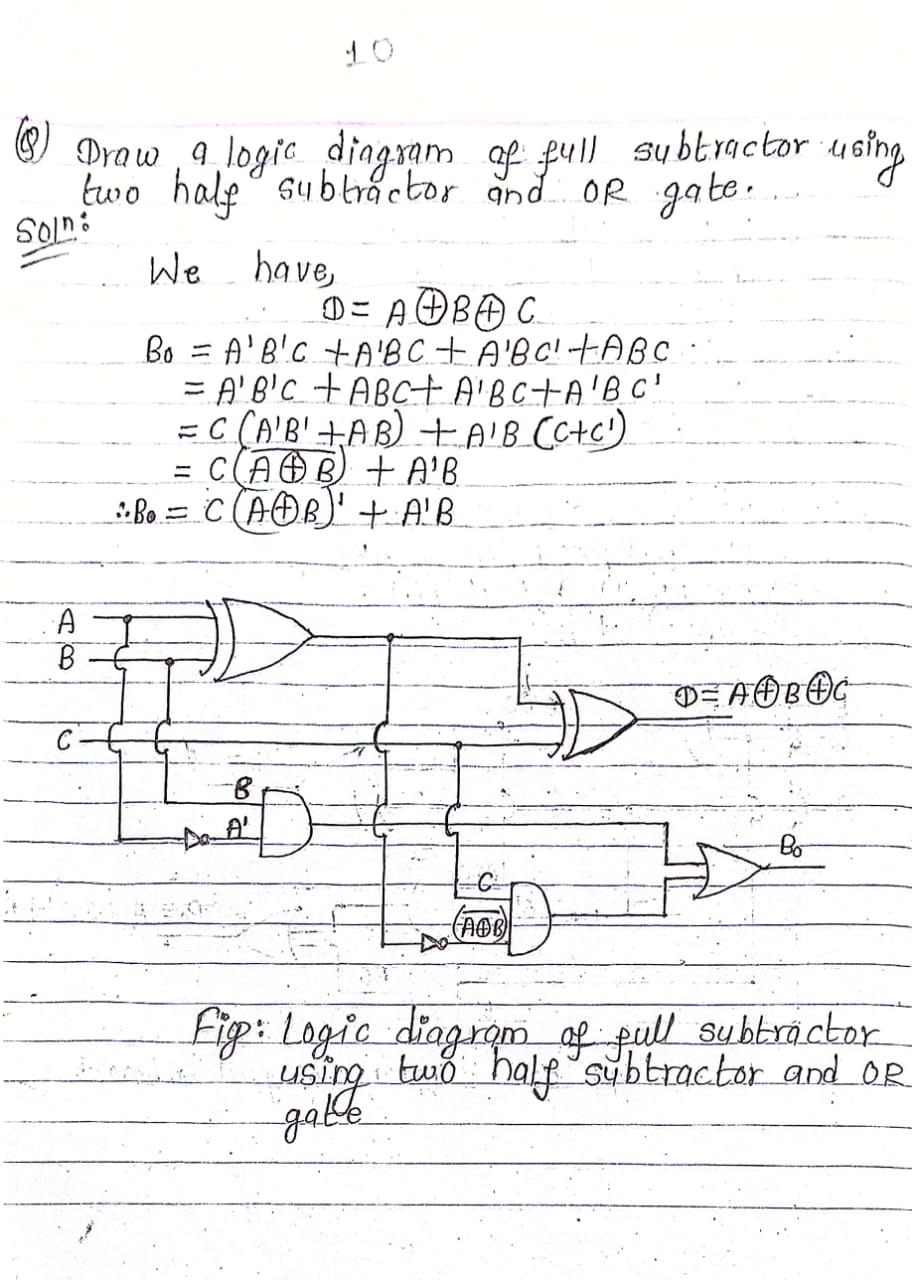 10
Q) Draw a logic diagram of full subtractor using
two half subtractor and OR gate.
Soln:
We have,
D = A⊕B⊕C
Bo = A'B'C + A'BC + A'BC' + ABC
= A'B'C + ABC + A'BC + A'BC'
= C (A'B' + AB) + A'B (C+C')
= C(\overline{A⊕B}) + A'B
∴Bo = C (A⊕B)' + A'B
A
B
D = A⊕B⊕C
C
B
A'
Bo
C
(\overline{A⊕B})
Fig: Logic diagram of full subtractor
using two half subtractor and OR
gate